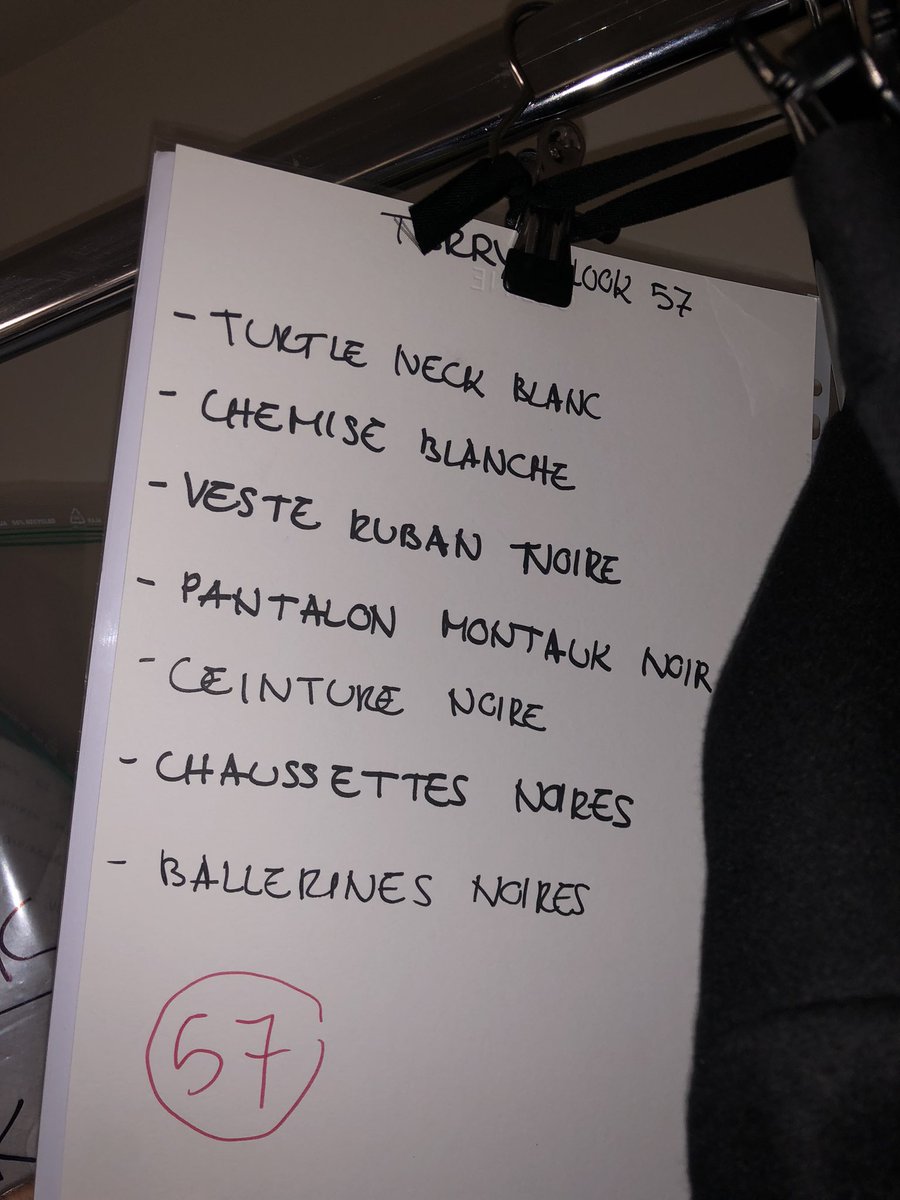 LOOK 57
- TURTLE NECK BLANC
- CHEMISE BLANCHE
- VESTE RUBAN NOIRE
- PANTALON MONTAUK NOIR
- CEINTURE NOIRE
- CHAUSSETTES NOIRES
- BALLERINES NOIRES
57